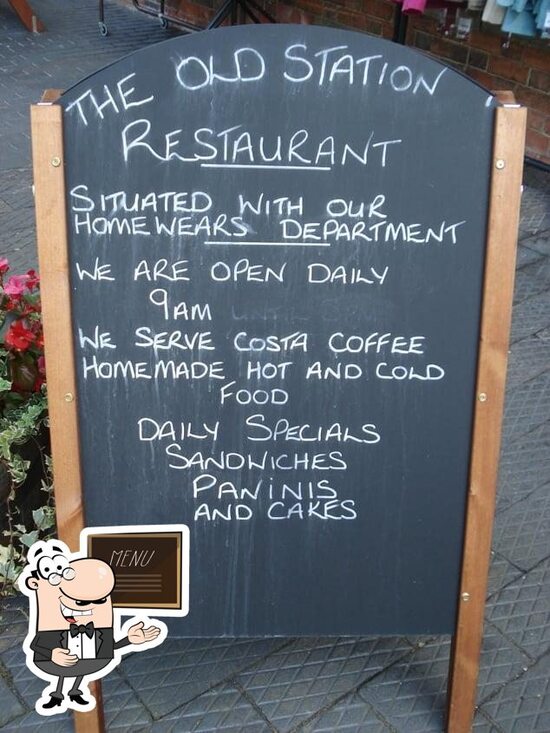 THE OLD STATION
RESTAURANT
SITUATED WITH OUR
HOMEWEARS DEPARTMENT
WE ARE OPEN DAILY
9AM UNTIL
WE SERVE COSTA COFFEE
HOMEMADE HOT AND COLD
FOOD
DAILY SPECIALS
SANDWICHES
PANINIS
AND CAKES
MENU